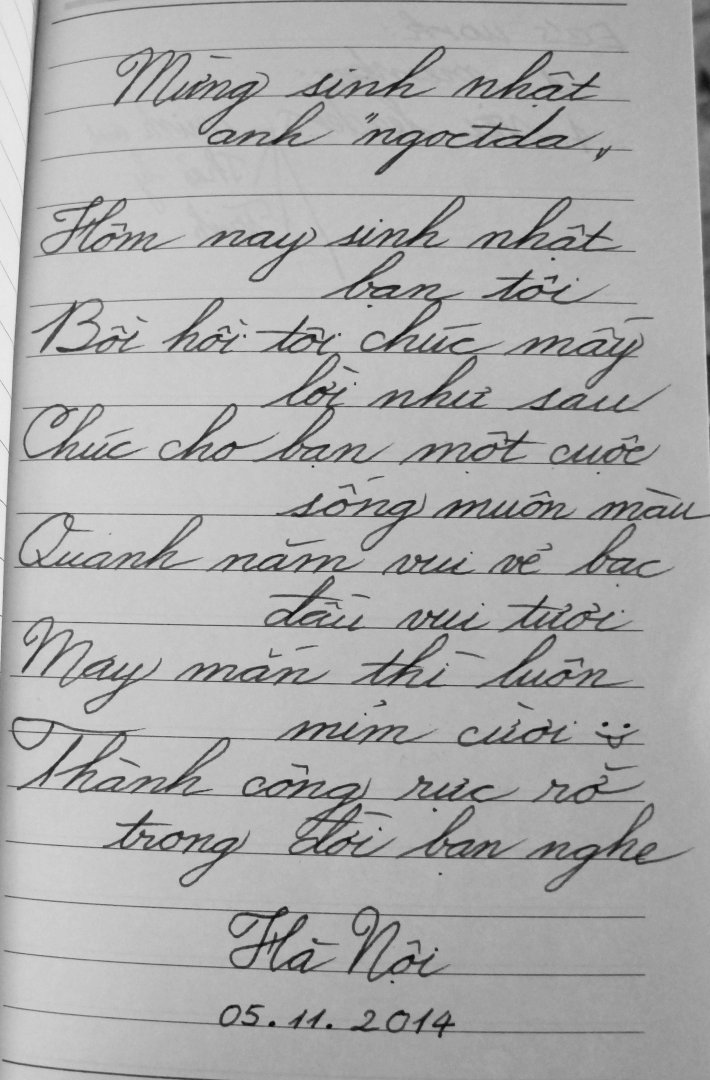 Mừng sinh nhật
anh "ngoctda"
Hôm nay sinh nhật
bạn tôi
Bồi hồi tôi chúc mấy
lời như sau
Chúc cho bạn một cuộc
sống muôn màu
Quanh năm vui vẻ bạc
đầu vui tươi
May mắn thì luôn
mỉm cười
Thành công rực rỡ
trong đời bạn nghe
Hà Nội
05.11.2014